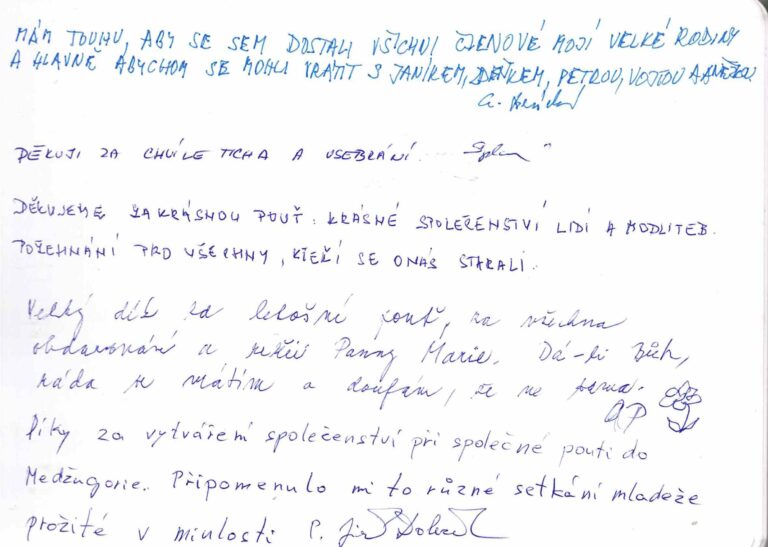 MÁM TOUHU, ABY SE SEM DOSTALI VŠICHNI ČLENOVÉ MOJÍ VELKÉ RODINY
A HLAVNĚ ABYCHOM SE MOHLI VRÁTIT S JANÍKEM, PETROU, VOJTOU A ANEŽKOU.
DĚKUJI ZA CHVÍLE TICHA A USEBRÁNÍ.
DĚKUJEME ZA KRÁSNOU POUŤ. KRÁSNÉ SPOLEČENSTVÍ LIDÍ A MODLITEB.
POŽEHNÁNÍ PRO VŠECHNY, KTEŘÍ SE O NÁS STARALI.
Velký dík za letošní pouť, za všechna
obdarování a režii Panny Marie. Dá-li Bůh,
ráda se vrátím a doufám, že ne sama.
AP
Díky za vytváření společenství při společné pouti do
Medžugorie. Připomenulo mi to různé setkání mladeže
prožité v minulosti P. Jiří